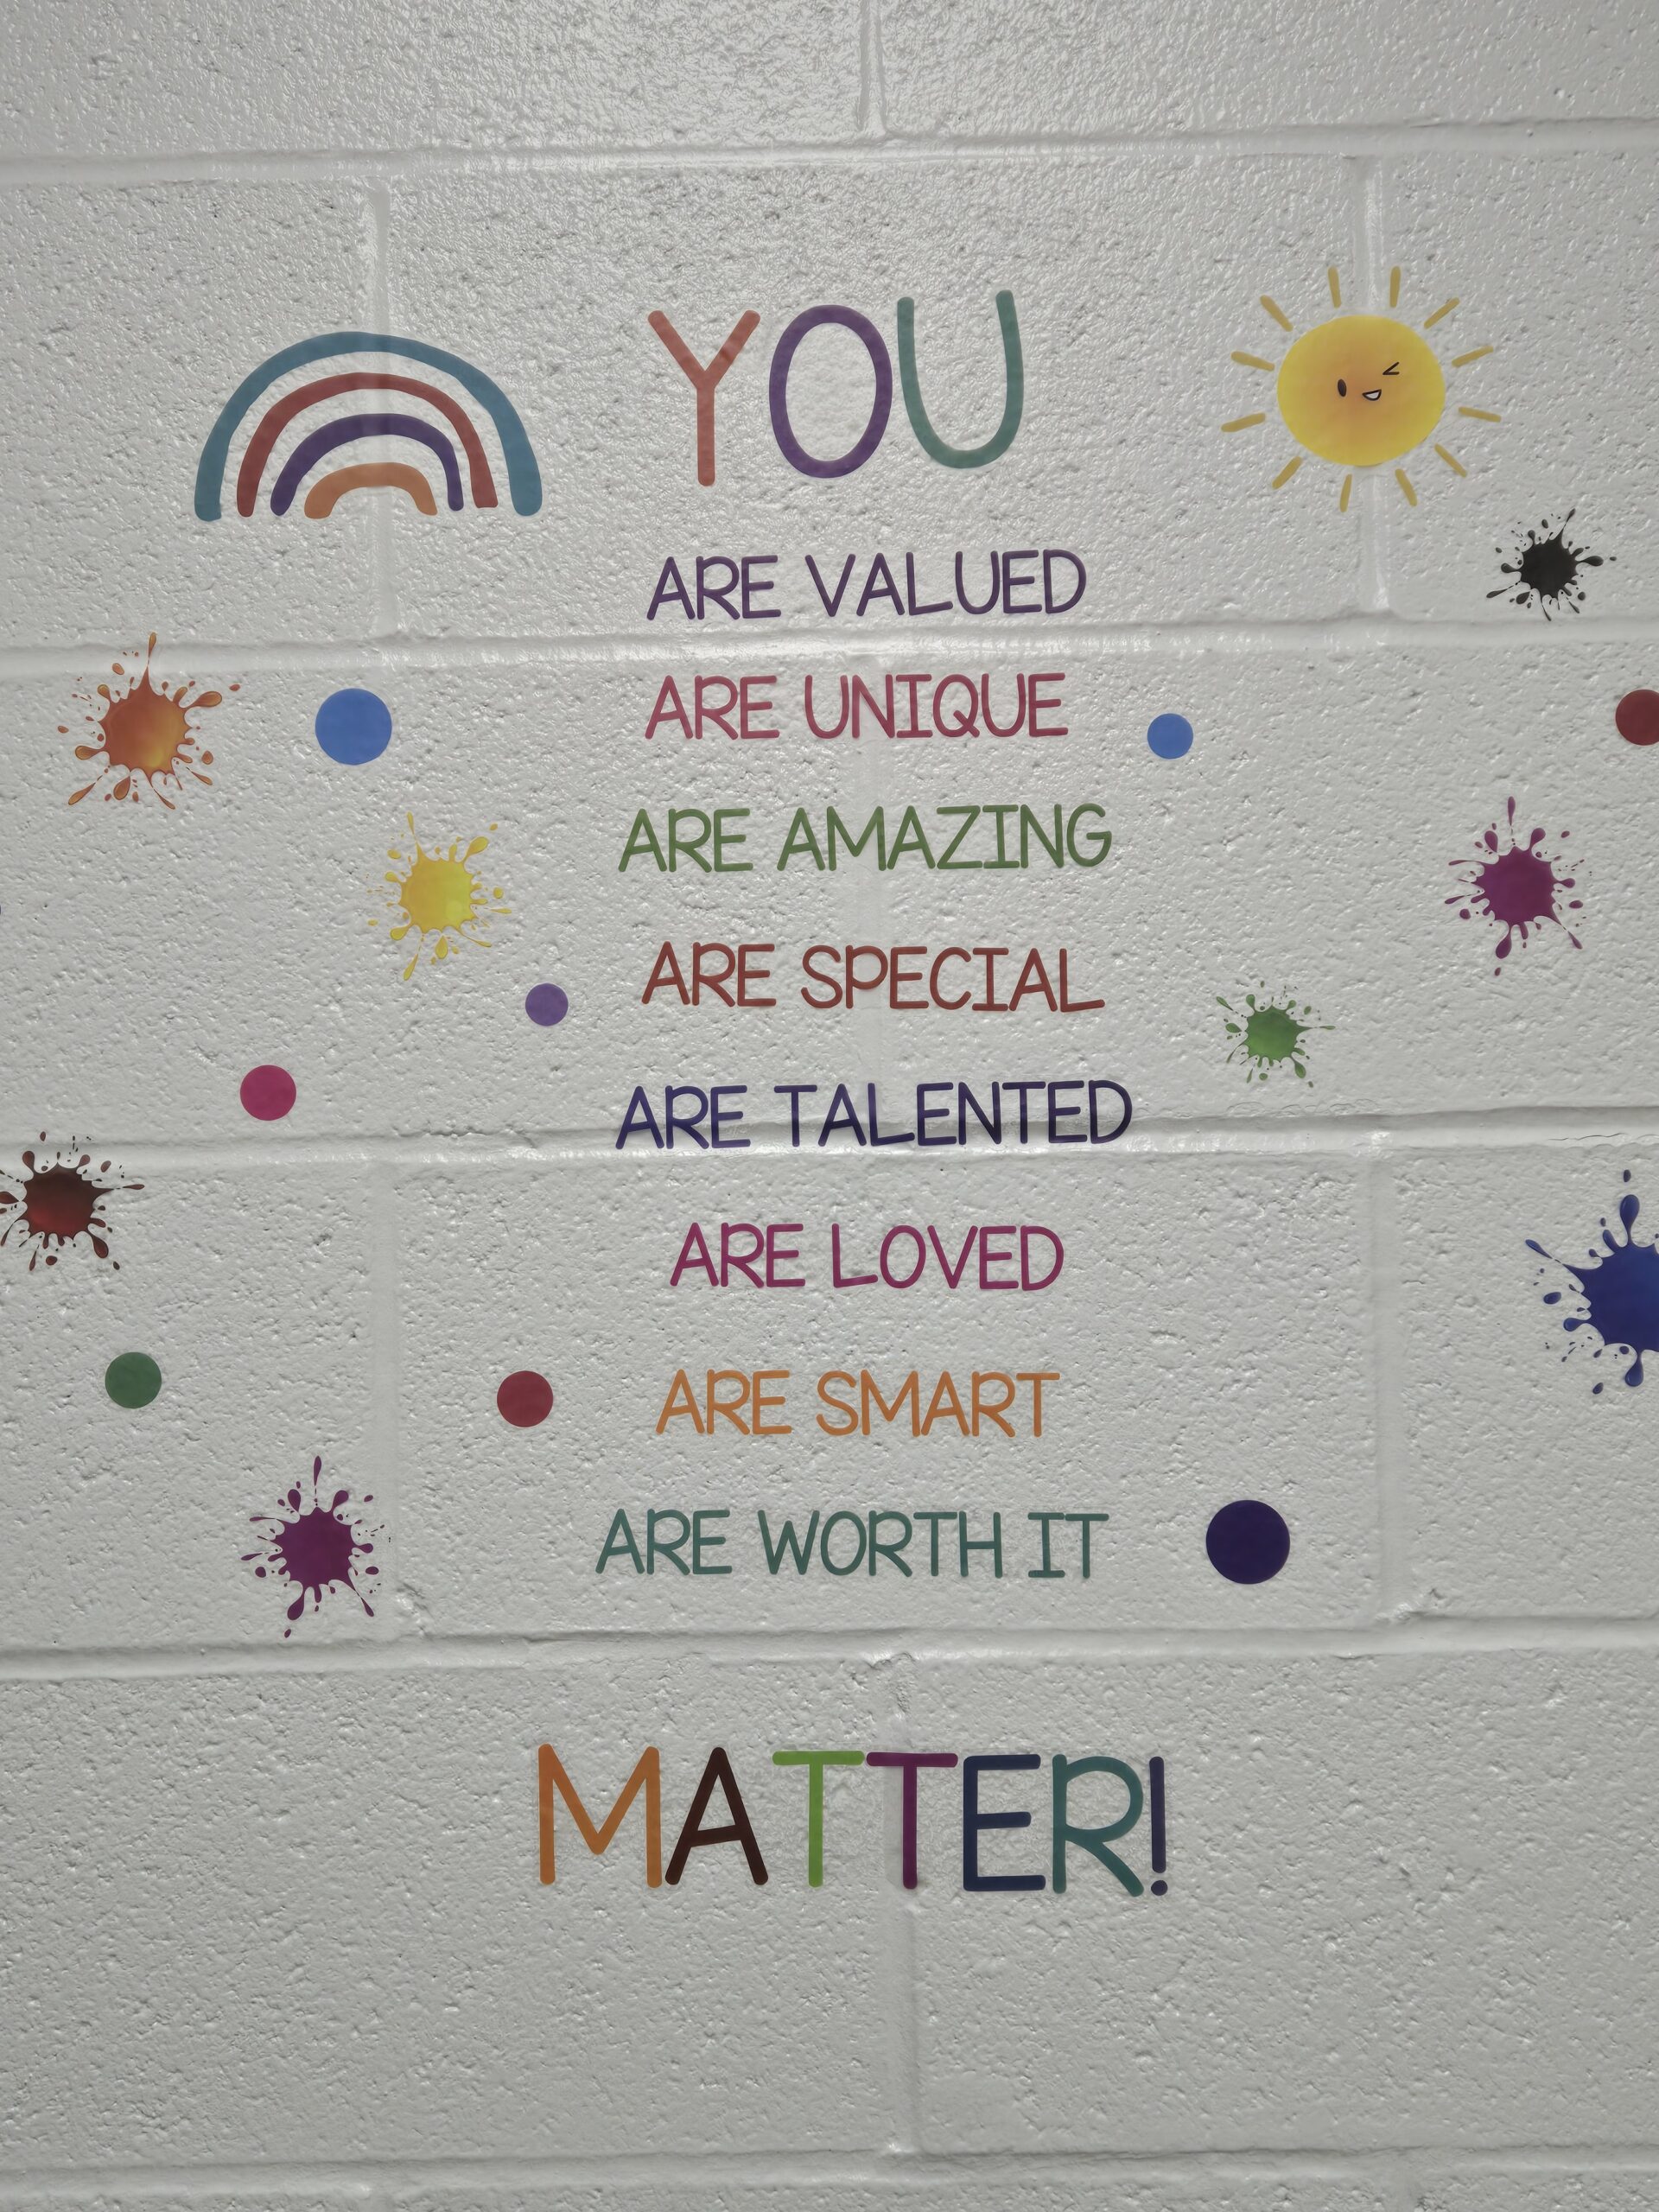 YOU
ARE VALUED
ARE UNIQUE
ARE AMAZING
ARE SPECIAL
ARE TALENTED
ARE LOVED
ARE SMART
ARE WORTH IT
MATTER!